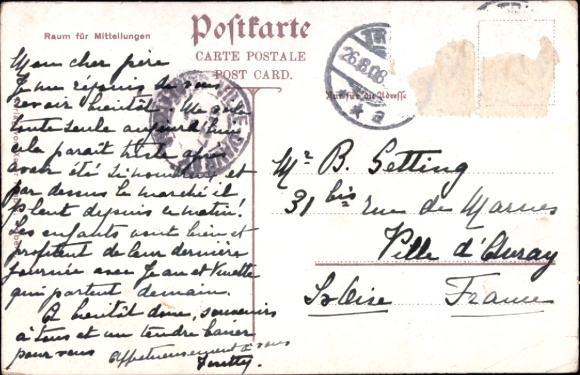 Postkarte
Raum für Mitteilungen
CARTE POSTALE
POST CARD.
Nur für die Adresse
26.8.08
* * a
VILLE-D'AVRAY
Mon cher père
Je me réjouis de vous
revoir bientôt. Me voilà
toute seule aujourd'hui
cela paraît triste après
avoir été si nombreux et
par dessus le marché il
pleut depuis ce matin!
Les enfants vont bien et
profitent de leur dernière
journée avec Jean et
qui partent demain.
A bientôt donc, souvenirs
à tous et un tendre baiser
pour vous affectueusement à vous
Mr B. Setting
31 bis rue de Marnes
Ville d'Avray
S. Oise France